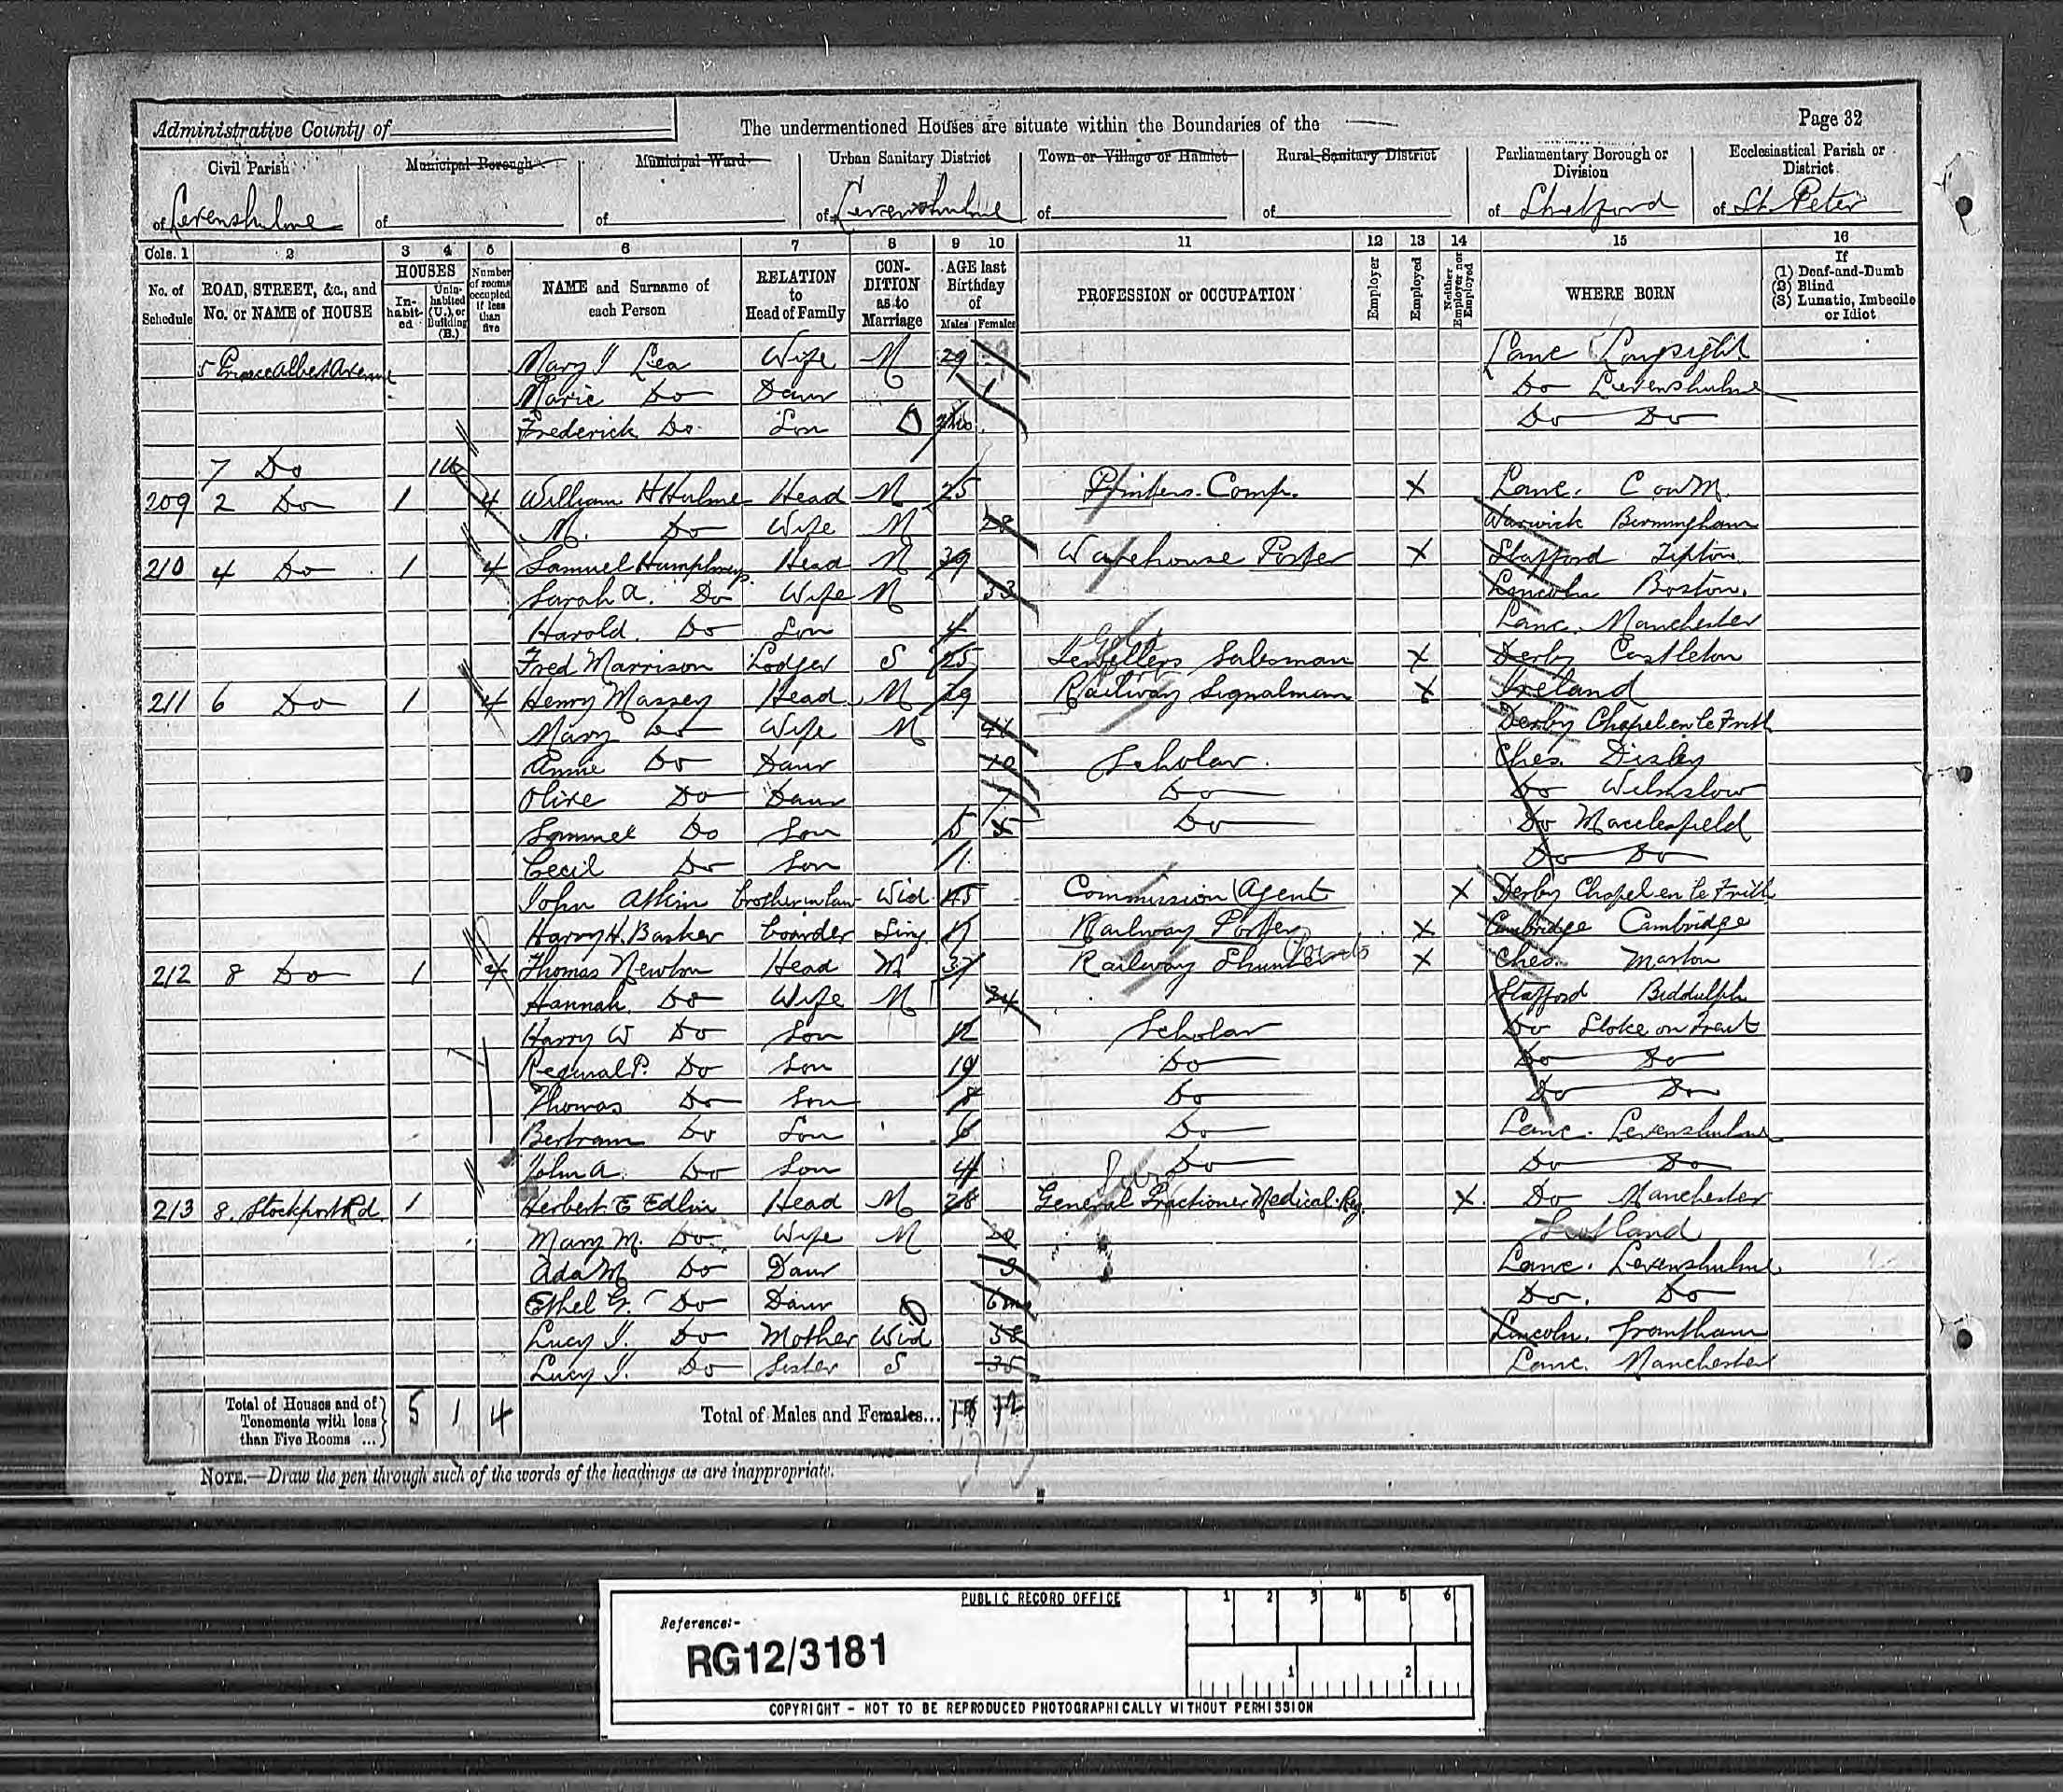 Administrative County of
The undermentioned Houses are situate within the Boundaries of the
Page 32
Civil Parish
of Levenshulme
Municipal Borough
of
Municipal Ward
of
Urban Sanitary District
of Levenshulme
Town or Village or Hamlet
of
Rural Sanitary District
of
Parliamentary Borough or Division
of Stretford
Ecclesiastical Parish or District
of St. Peter
Cols. 1 2 3 4 5 6 7 8 9 10 11 12 13 14 15 16
No. of Schedule
ROAD, STREET, &c., and No. or NAME of HOUSE
HOUSES
In-habit-ed
Unin-habited (U.), or Building (B.)
Number of rooms occupied if less than five
NAME and Surname of each Person
RELATION to Head of Family
CON-DITION as to Marriage
AGE last Birthday of
Males Females
PROFESSION or OCCUPATION
Employer
Employed
Neither Employer nor Employed
WHERE BORN
If
(1) Deaf-and-Dumb
(2) Blind
(3) Lunatic, Imbecile or Idiot
5 Prince Albert Avenue Mary J Lea Wife M 29 Lanc Longsight
Marie Do Daur 1 Do Levenshulme
Frederick Do Son Do Do
7 Do 1U
209 2 Do 1 4 William H Hulme Head M 25 Printers Comp. X Lanc. C on M.
M. Do Wife M 28 Warwick Birmingham
210 4 Do 1 4 Samuel Humphreys Head M 39 Warehouse Porter X Stafford Tipton
Sarah A. Do Wife M 33 Lincoln Boston.
Harold Do Son 4 Lanc. Manchester
Fred Marrison Lodger S 25 Jewellers Salesman X Derby Castleton
211 6 Do 1 4 Henry Massey Head M 39 Railway Signalman X Ireland
Mary Do Wife M 41 Derby Chapel en le Frith
Annie Do Daur 10 Scholar. Ches. Disley
Olive Do Daur 7 Do Do Wilmslow
Sammel Do Son 5 Do Do Macclesfield
Cecil Do Son 1 Do Do
John Atkin Brother in law Wid 45 Commission Agent X Derby Chapel en le Frith
Harry H. Basker Boarder Sing. Railway Porter X Cambridge Cambridge
212 8 Do 1 4 Thomas Newton Head M 37 Railway Shunter X Ches. Marton
Hannah Do Wife M 34 Stafford Biddulph
Harry W Do Son 12 Scholar Do Stoke on Trent
Reginal P. Do Son 10 Do Do Do
Thomas Do Son 8 Do Do Do
Bertram Do Son 6 Do Lanc. Levenshulme
John A. Do Son 4 Do Do Do
213 8. Stockport Rd. 1 Herbert E Edlin Head M 28 General Practioner Medical. Reg. X Do Manchester
Mary M. Do Wife M 28 Scotland
Ada M Do Daur 3 Lanc. Levenshulme
Ethel G. Do Daur 6 mo Do. Do
Lucy J. Do Mother Wid 58 Lincoln. Grantham
Lucy J. Do Sister S 35 Lanc. Manchester
Total of Houses and of Tenements with less than Five Rooms ... 5 1 4
Total of Males and Females...
NOTE.—Draw the pen through such of the words of the headings as are inappropriate.
PUBLIC RECORD OFFICE
1 2 3 4 5 6
Reference:-
RG12/3181
1 2
COPYRIGHT - NOT TO BE REPRODUCED PHOTOGRAPHICALLY WITHOUT PERMISSION